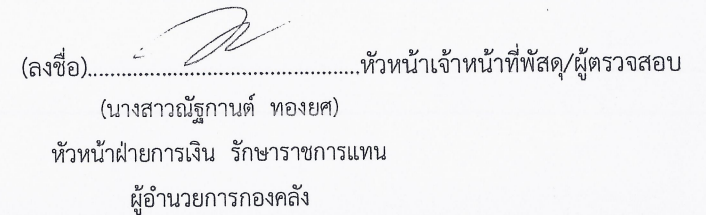 (ลงชื่อ)..................................................หัวหน้าเจ้าหน้าที่พัสดุ/ผู้ตรวจสอบ
(นางสาวณัฐกานต์ ทองยศ)
หัวหน้าฝ่ายการเงิน รักษาราชการแทน
ผู้อำนวยการกองคลัง